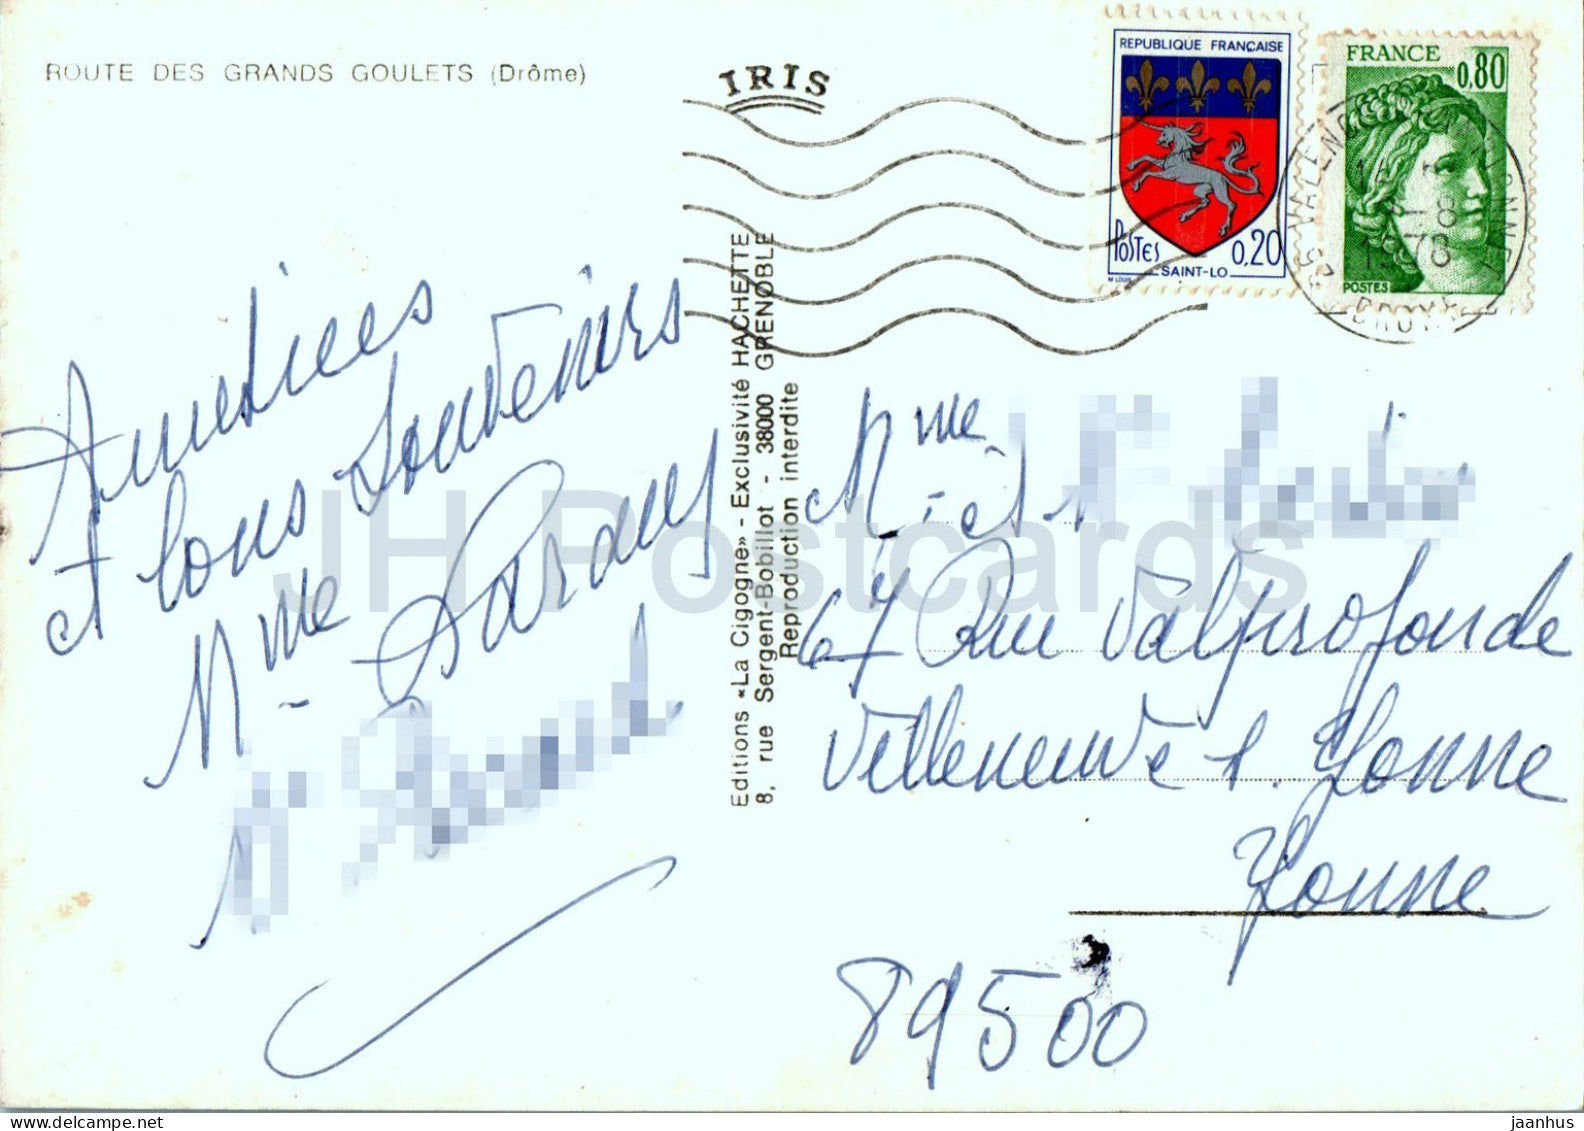 ROUTE DES GRANDS GOULETS (Drôme)
IRIS
REPUBLIQUE FRANÇAISE
POSTES
0,20
SAINT-LO
M LOUIS
FRANCE
0,80
POSTES
26 VALENCE
1978
DROME
Amitiees
et bons Souvenirs
Mme Darany
Editions «La Cigogne» - Exclusivité HACHETTE
8, rue Sergent-Bobillot - 38000 GRENOBLE
Reproduction interdite
Mme et Mr
67 Rue Valprofonde
Villeneuve s. Yonne
Yonne
89500
JH Postcards
www.delcampe.net
jaanhus